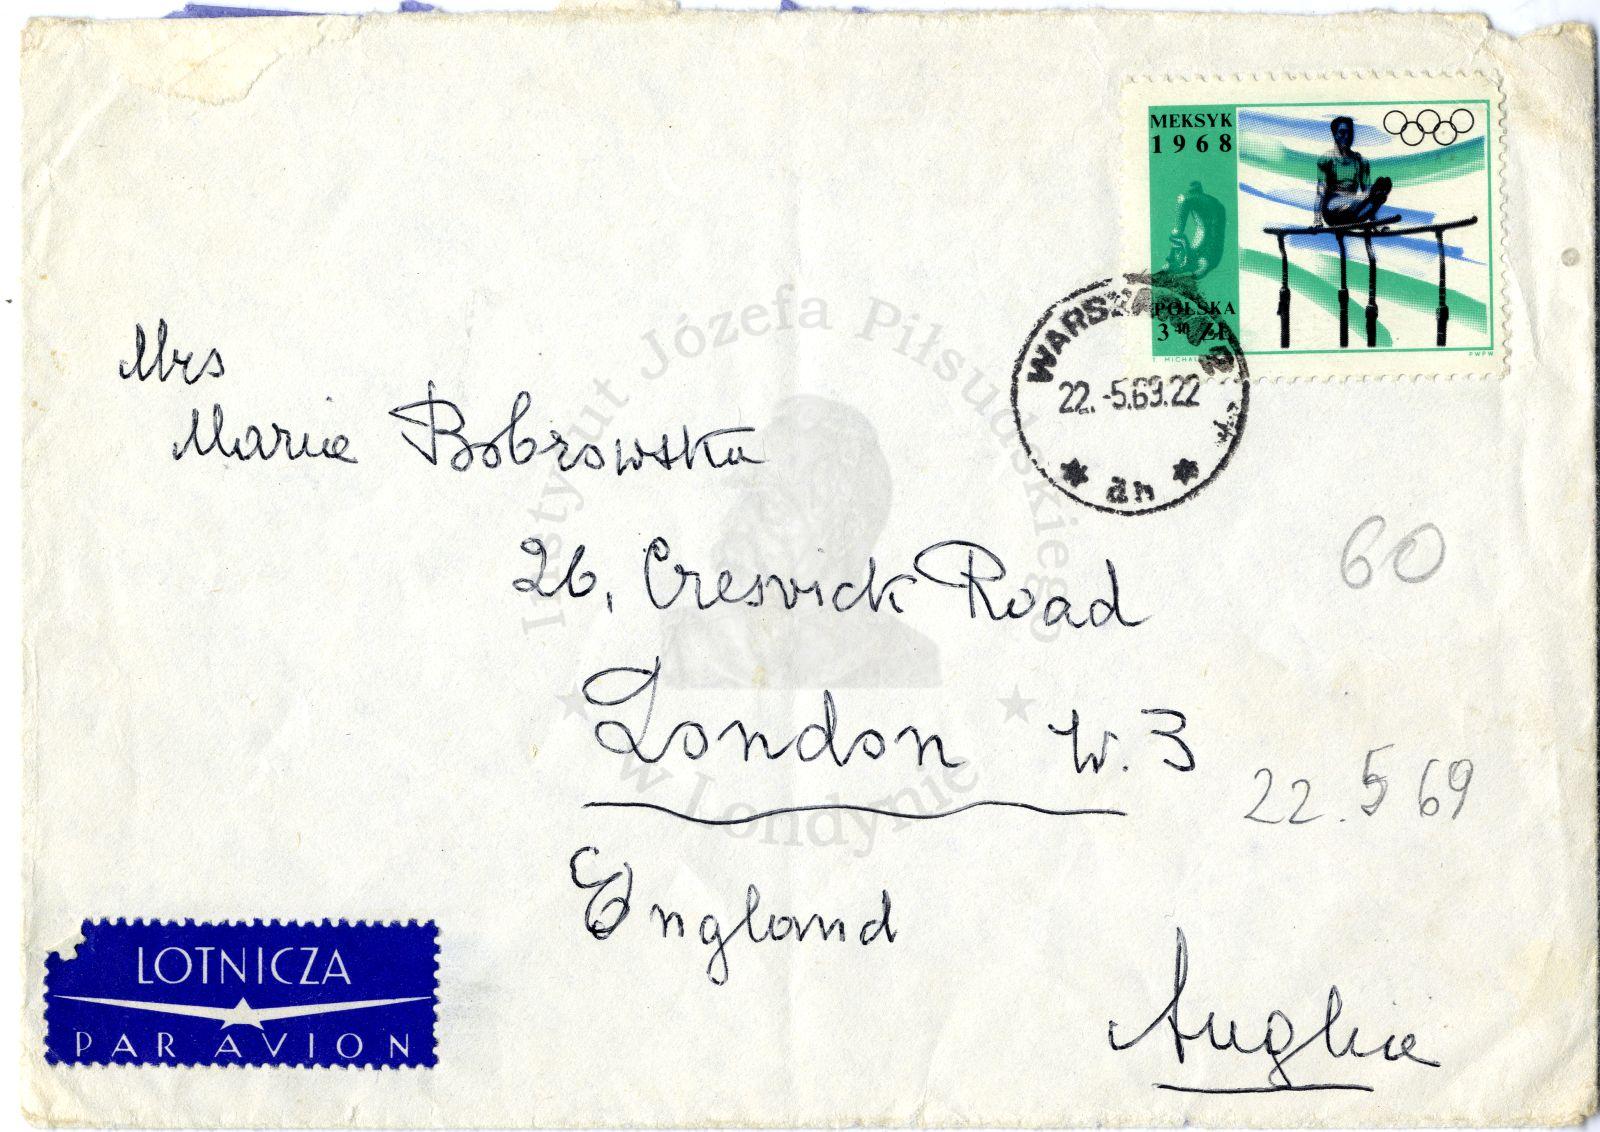 MEKSYK
1968
POLSKA
3 40 ZŁ
PWPW
WARSZAWA
22.-5.69.22
an
Mrs
Maria Bobrowska
26, Cresvick Road
London W. 3
England
Anglia
60
22. 5 69
LOTNICZA
PAR AVION
Instytut Józefa Piłsudskiego
w Londynie